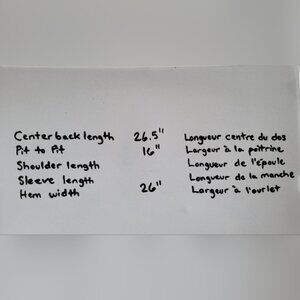 Center back length 26.5" Longueur centre du dos
Pit to Pit 16" Largeur à la poitrine
Shoulder length Longueur de l'épaule
Sleeve length Longueur de la manche
Hem width 26" Largeur à l'ourlet